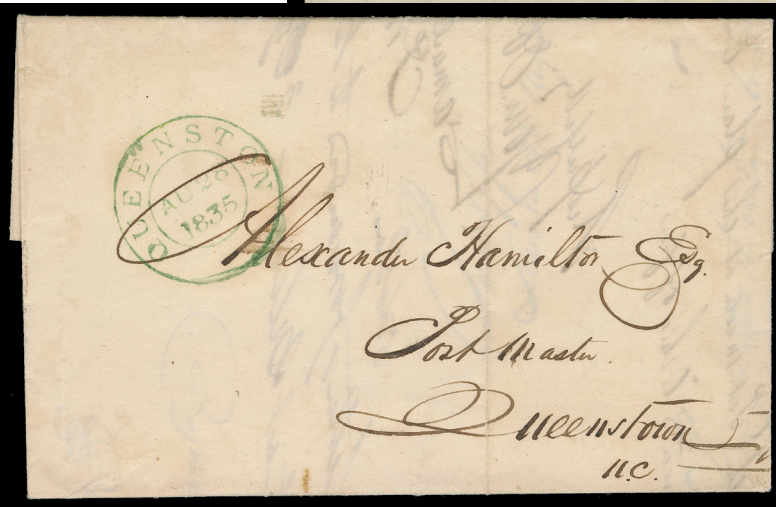 QUEENSTON
AU 28
1835
Alexander Hamilton Esq.
Post Master
Queenstown
U.C.